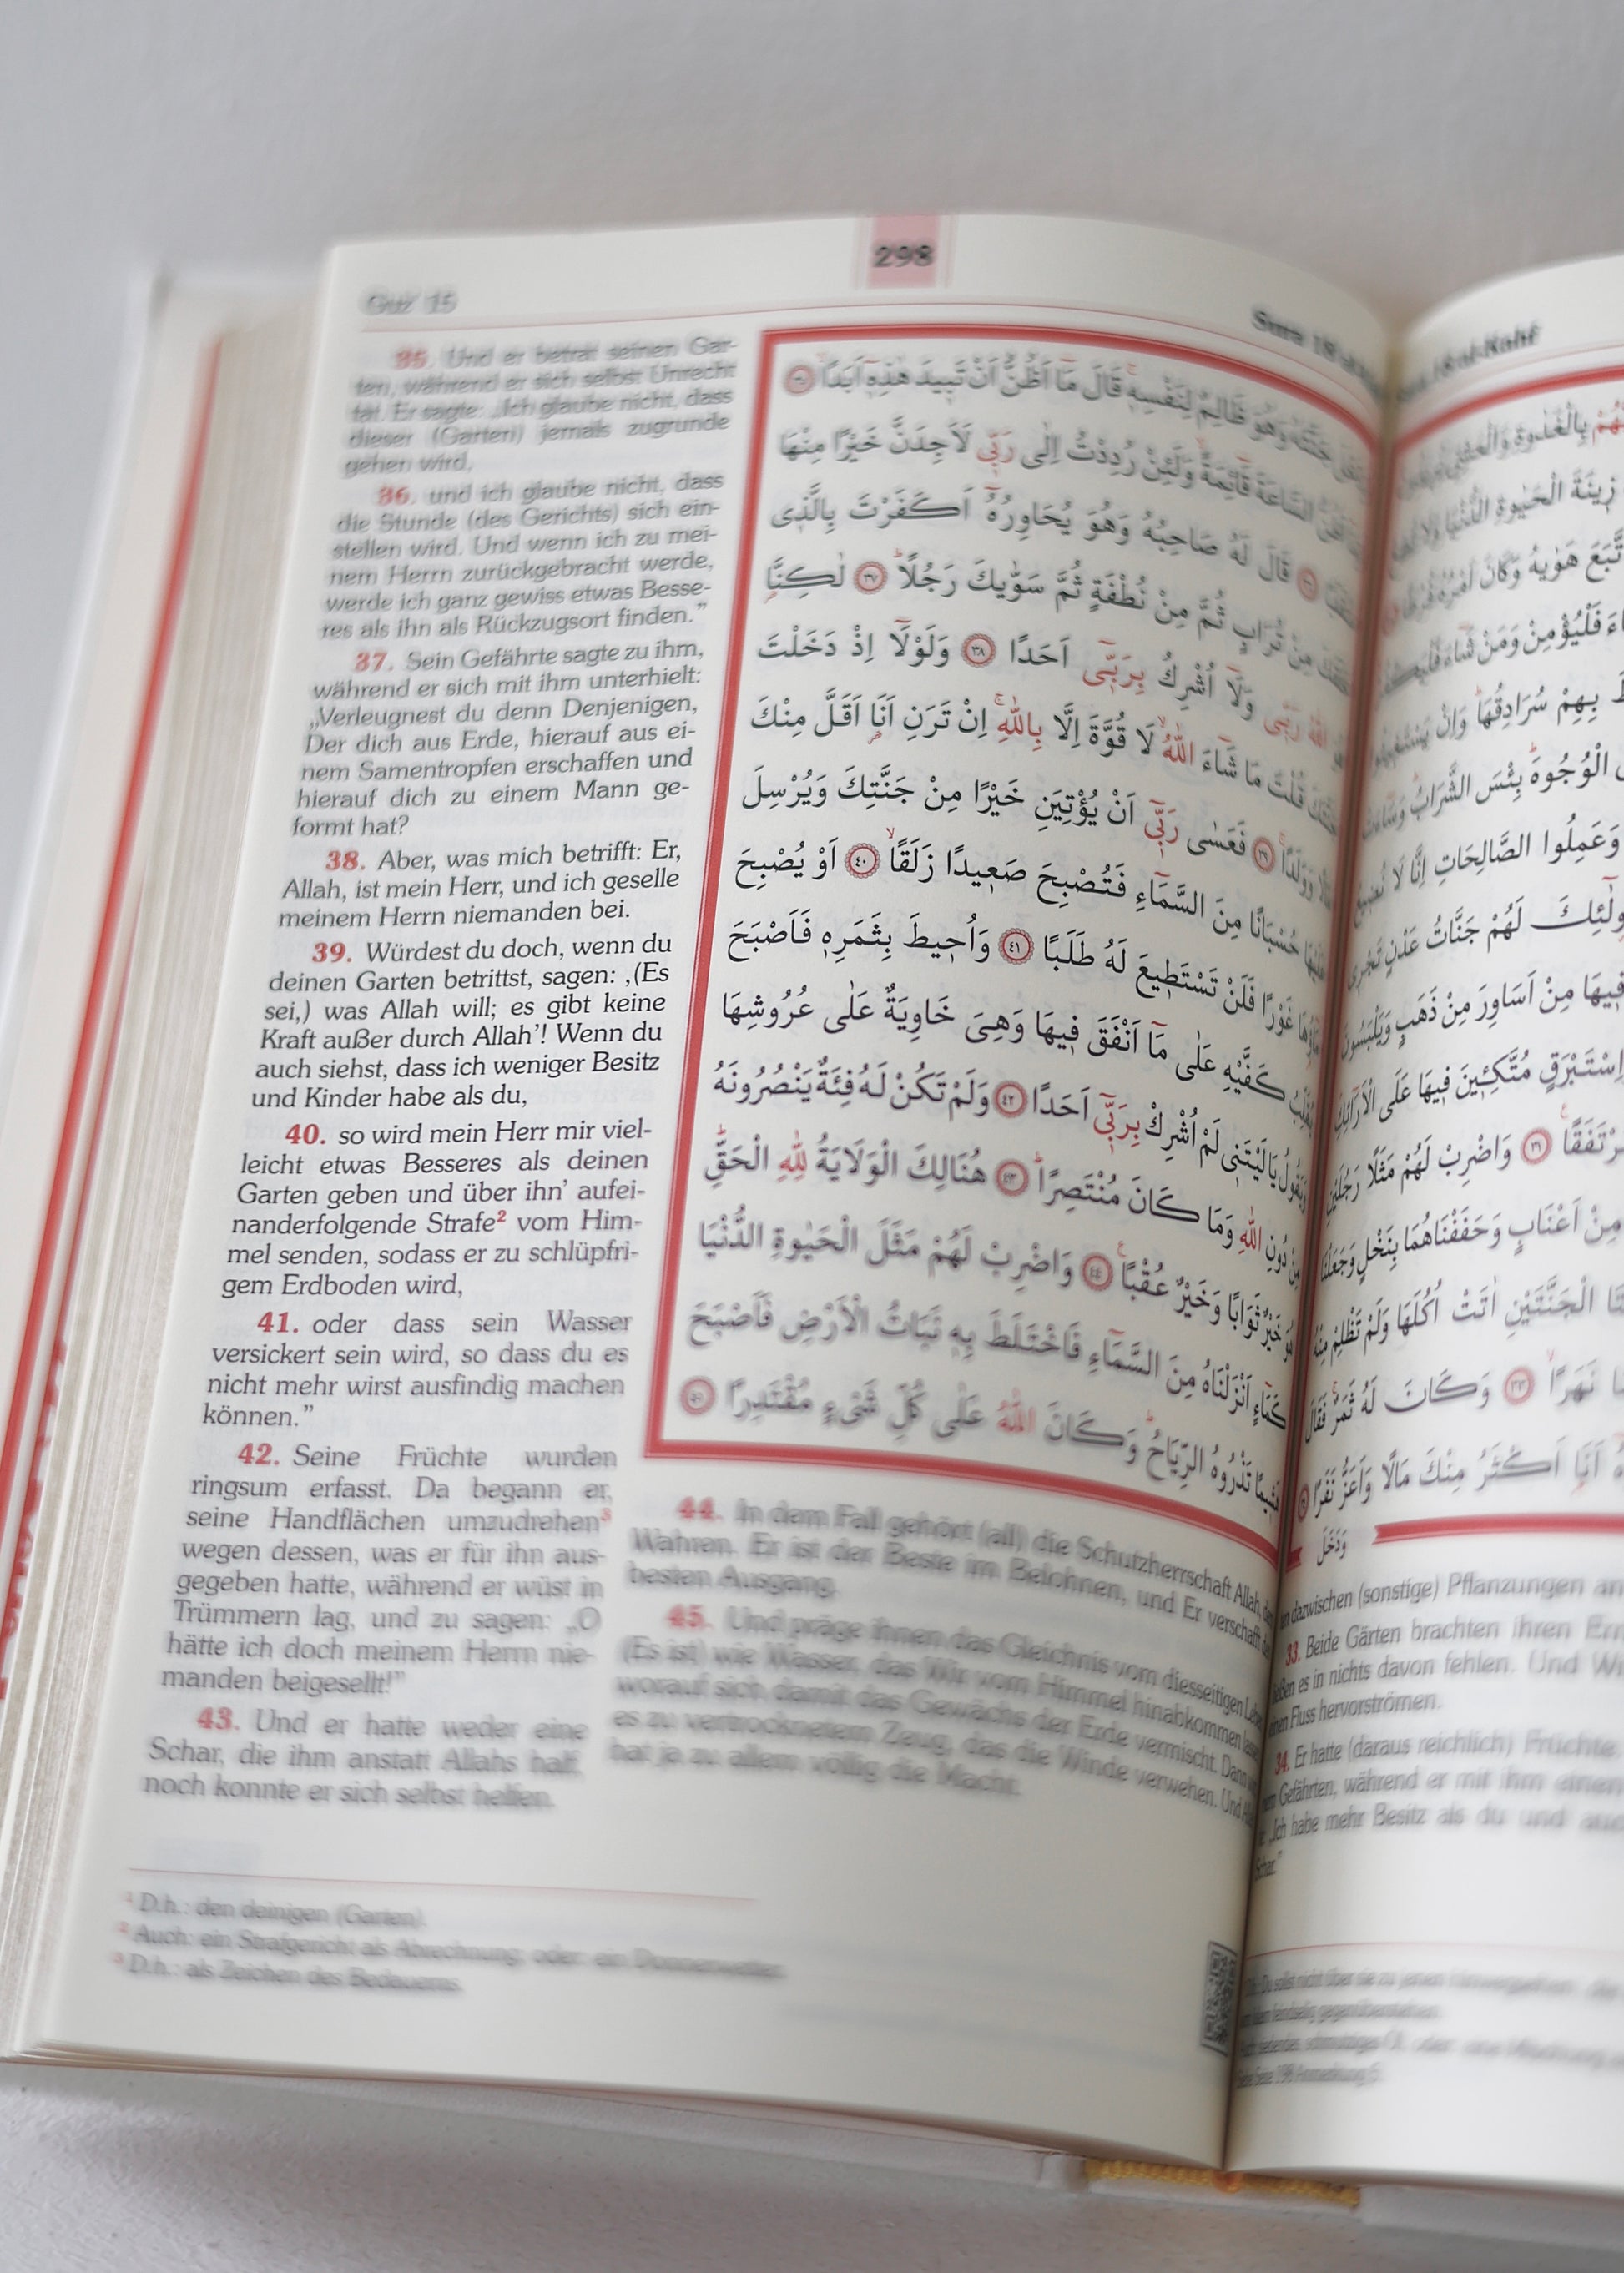 298
Ǧuz' 15
Sura 18
35. Und er betrat seinen Gar-
ten, während er sich selbst Unrecht
tat. Er sagte: „Ich glaube nicht, dass
dieser (Garten) jemals zugrunde
gehen wird,
36. und ich glaube nicht, dass
die Stunde (des Gerichts) sich ein-
stellen wird. Und wenn ich zu mei-
nem Herrn zurückgebracht werde,
werde ich ganz gewiss etwas Besse-
res als ihn als Rückzugsort finden.”
37. Sein Gefährte sagte zu ihm,
während er sich mit ihm unterhielt:
„Verleugnest du denn Denjenigen,
Der dich aus Erde, hierauf aus ei-
nem Samentropfen erschaffen und
hierauf dich zu einem Mann ge-
formt hat?
38. Aber, was mich betrifft: Er,
Allah, ist mein Herr, und ich geselle
meinem Herrn niemanden bei.
39. Würdest du doch, wenn du
deinen Garten betrittst, sagen: ‚(Es
sei,) was Allah will; es gibt keine
Kraft außer durch Allah’! Wenn du
auch siehst, dass ich weniger Besitz
und Kinder habe als du,
40. so wird mein Herr mir viel-
leicht etwas Besseres als deinen
Garten geben und über ihn’ aufei-
nanderfolgende Strafe² vom Him-
mel senden, sodass er zu schlüpfri-
gem Erdboden wird,
41. oder dass sein Wasser
versickert sein wird, so dass du es
nicht mehr wirst ausfindig machen
können.”
42. Seine Früchte wurden
ringsum erfasst. Da begann er,
seine Handflächen umzudrehen³
wegen dessen, was er für ihn aus-
gegeben hatte, während er wüst in
Trümmern lag, und zu sagen: „O
hätte ich doch meinem Herrn nie-
manden beigesellt!”
43. Und er hatte weder eine
Schar, die ihm anstatt Allahs half,
noch konnte er sich selbst helfen.
وَهُوَ ظَالِمٌ لِنَفْسِهٖ قَالَ مَٓا اَظُنُّ اَنْ تَب۪يدَ هٰذِه۪ٓ اَبَدًا
السَّاعَةَ قَٓائِمَةً وَلَئِنْ رُدِدْتُ اِلٰى رَبّ۪ى لَاَجِدَنَّ خَيْرًا مِنْهَا
قَالَ لَهُ صَاحِبُهُ وَهُوَ يُحَاوِرُهُٓ اَكَفَرْتَ بِالَّذ۪ى
مِنْ تُرَابٍ ثُمَّ مِنْ نُطْفَةٍ ثُمَّ سَوّٰيكَ رَجُلًا ﴿٣٧﴾ لٰكِنَّا۬
اللّٰهُ رَبّ۪ى وَلَٓا اُشْرِكُ بِرَبّ۪ٓى اَحَدًا ﴿٣٨﴾ وَلَوْلَٓا اِذْ دَخَلْتَ
جَنَّتَكَ قُلْتَ مَا شَٓاءَ اللّٰهُ لَا قُوَّةَ اِلَّا بِاللّٰهِ اِنْ تَرَنِ اَنَا۬ اَقَلَّ مِنْكَ
وَوَلَدًا ﴿٣٩﴾ فَعَسٰى رَبّ۪ٓى اَنْ يُؤْتِيَنِ خَيْرًا مِنْ جَنَّتِكَ وَيُرْسِلَ
عَلَيْهَا حُسْبَانًا مِنَ السَّمَٓاءِ فَتُصْبِحَ صَع۪يدًا زَلَقًا ﴿٤٠﴾ اَوْ يُصْبِحَ
مَٓاؤُهَا غَوْرًا فَلَنْ تَسْتَط۪يعَ لَهُ طَلَبًا ﴿٤١﴾ وَاُح۪يطَ بِثَمَرِه۪ فَاَصْبَحَ
يُقَلِّبُ كَفَّيْهِ عَلٰى مَٓا اَنْفَقَ ف۪يهَا وَهِىَ خَاوِيَةٌ عَلٰى عُرُوشِهَا
وَيَقُولُ يَا لَيْتَن۪ى لَمْ اُشْرِكْ بِرَبّ۪ٓى اَحَدًا ﴿٤٢﴾ وَلَمْ تَكُنْ لَهُ فِئَةٌ يَنْصُرُونَهُ
مِنْ دُونِ اللّٰهِ وَمَا كَانَ مُنْتَصِرًا ﴿٤٣﴾ هُنَالِكَ الْوَلَايَةُ لِلّٰهِ الْحَقِّ
هُوَ خَيْرٌ ثَوَابًا وَخَيْرٌ عُقْبًا ﴿٤٤﴾ وَاضْرِبْ لَهُمْ مَثَلَ الْحَيٰوةِ الدُّنْيَا
كَمَٓاءٍ اَنْزَلْنَاهُ مِنَ السَّمَٓاءِ فَاخْتَلَطَ بِه۪ نَبَاتُ الْاَرْضِ فَاَصْبَحَ
هَش۪يمًا تَذْرُوهُ الرِّيَاحُ وَكَانَ اللّٰهُ عَلٰى كُلِّ شَىْءٍ مُقْتَدِرًا ﴿٤٥﴾
44. In dem Fall gehört (all) die Schutzherrschaft Allah,
Wahren. Er ist der Beste im Belohnen, und Er verschafft
besten Ausgang.
45. Und präge ihnen das Gleichnis vom diesseitigen
(Es ist) wie Wasser, das Wir vom Himmel hinabkommen
worauf sich damit das Gewächs der Erde vermischt. Dann
es zu vertrocknetem Zeug, das die Winde verwehen. Und
hat ja zu allem völlig die Macht.
¹ D.h.: den deinigen (Garten).
² Auch: ein Strafgericht als Abrechnung; oder: ein Donnerwetter.
³ D.h.: als Zeichen des Bedauerns.
18 al-Kahf
بِالْغَدٰوةِ وَالْعَشِىِّ
ز۪ينَةَ الْحَيٰوةِ الدُّنْيَا
هَوٰيهُ وَكَانَ اَمْرُهُ
فَلْيُؤْمِنْ وَمَنْ شَٓاءَ فَلْيَكْفُرْ
بِهِمْ سُرَادِقُهَا وَاِنْ
الْوُجُوهَ بِئْسَ الشَّرَابُ
وَعَمِلُوا الصَّالِحَاتِ اِنَّا لَا
لَهُمْ جَنَّاتُ عَدْنٍ تَجْر۪ى
ف۪يهَا مِنْ اَسَاوِرَ مِنْ ذَهَبٍ وَيَلْبَسُونَ
مُتَّكِـ۪ٔينَ ف۪يهَا عَلَى الْاَرَٓائِكِ
وَاضْرِبْ لَهُمْ مَثَلًا رَجُلَيْنِ
مِنْ اَعْنَابٍ وَحَفَفْنَاهُمَا بِنَخْلٍ وَجَعَلْنَا
الْجَنَّتَيْنِ اٰتَتْ اُكُلَهَا وَلَمْ تَظْلِمْ مِنْهُ
نَهَرًا ﴿٣٣﴾ وَكَانَ لَهُ ثَمَرٌ فَقَالَ
اَنَا۬ اَكْثَرُ مِنْكَ مَالًا وَاَعَزُّ نَفَرًا
وَدَخَلَ
dazwischen (sonstige) Pflanzungen
33. Beide Gärten brachten ihren
es in nichts davon fehlen. Und
Fluss hervorströmen.
34. Er hatte (daraus reichlich) Früchte
Gefährten, während er mit ihm
„Ich habe mehr Besitz als du und
Schar.”